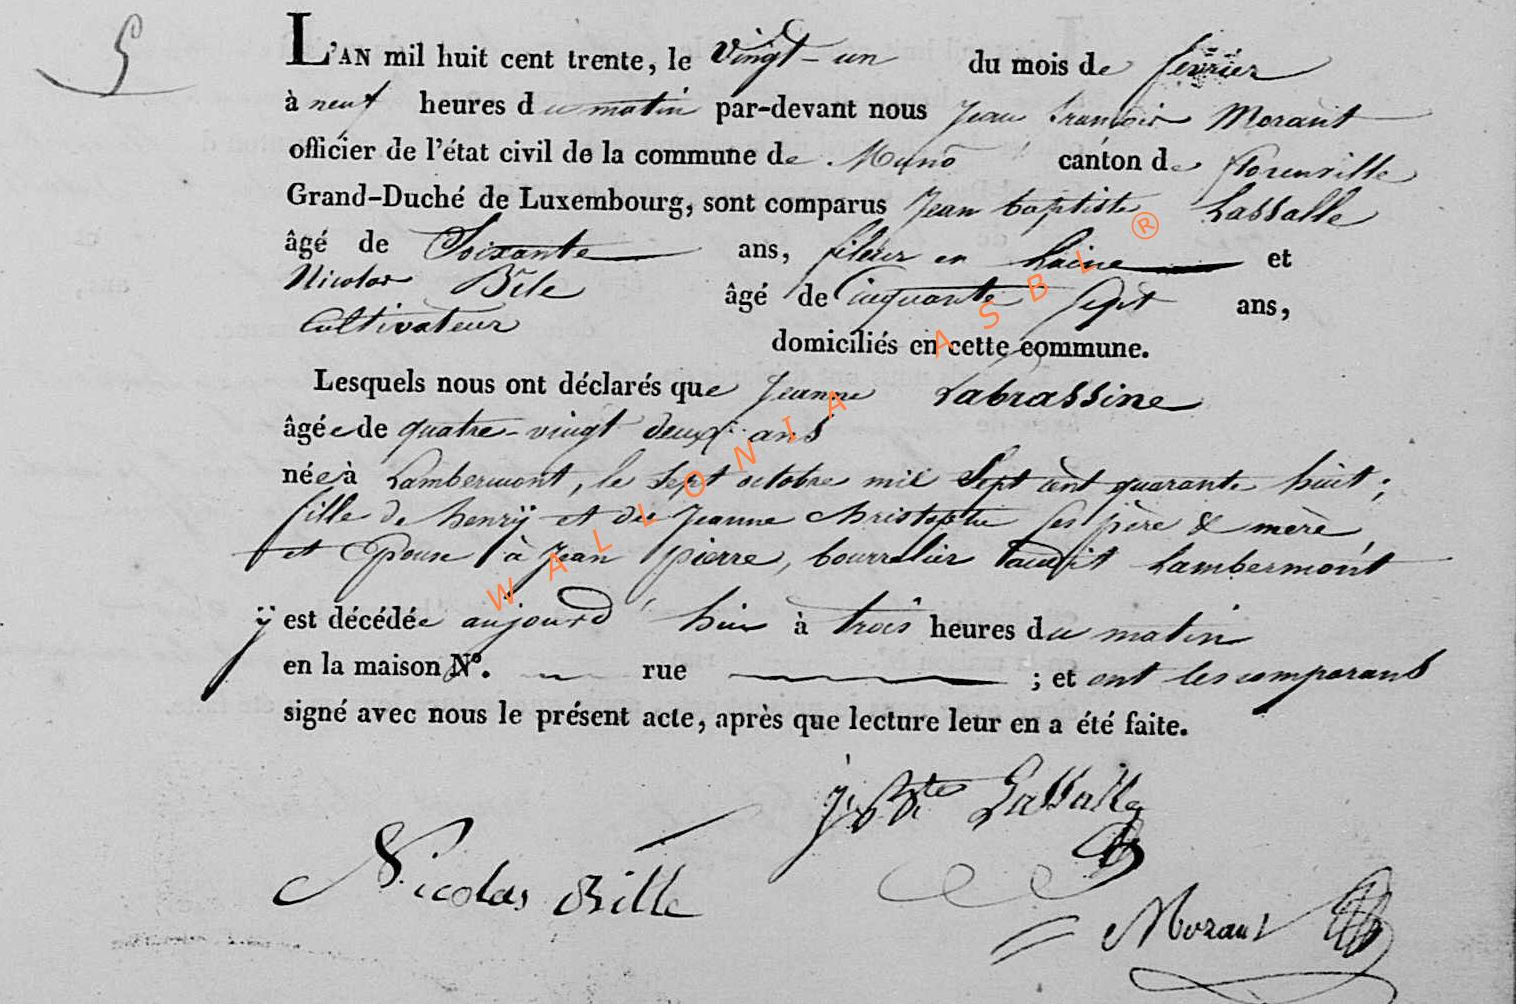 5
L'AN mil huit cent trente, le vingt-un du mois de février
à neuf heures du matin par-devant nous Jean françois Morant
officier de l'état civil de la commune de Muno canton de florenville
Grand-Duché de Luxembourg, sont comparus Jean baptiste Lassalle
âgé de Soixante ans, fileur en Laine et
Nicolas Bile âgé de Cinquante Sept ans,
Cultivateur
domiciliés en cette commune.
Lesquels nous ont déclarés que Jeanne Labrassine
âgée de quatre-vingt deux ans
née à Lambermont, le sept octobre mil Sept cent quarante huit;
fille de henrÿ et de Jeanne christophe ses père & mère,
et Epouse à Jean pierre, bourrelier audit Lambermont
ÿ est décédée aujourd'hui à trois heures du matin
en la maison N°. rue ; et ont les comparans
signé avec nous le présent acte, après que lecture leur en a été faite.
J. Bte Lassalle
Nicolas Bille
Morant
WALLONIA ASBL ®